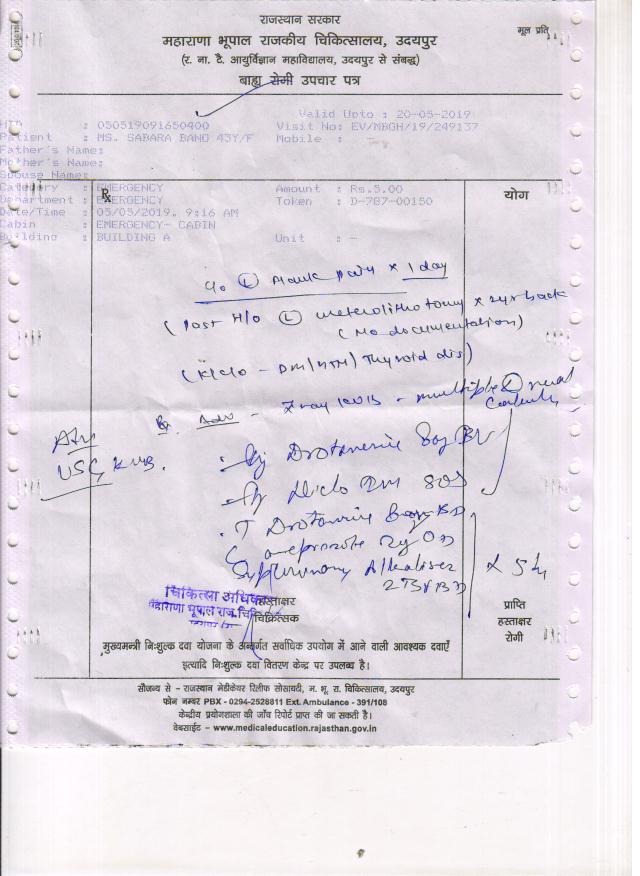 राजस्थान सरकार
मूल प्रति
महाराणा भूपाल राजकीय चिकित्सालय, उदयपुर
(र. ना. टै. आयुर्विज्ञान महाविद्यालय, उदयपुर से संबद्ध)
बाह्य रोगी उपचार पत्र
Valid Upto : 20-05-2019
: 050519091650400 Visit No: EV/MBGH/19/249137
Patient : MS. SABARA BANO 43Y/F Mobile :
Father's Name:
Mother's Name:
Spouse Name:
Category : EMERGENCY Amount : Rs.5.00
Department : EMERGENCY Token : D-787-00150
Date/Time : 05/05/2019. 9:16 AM
Cabin : EMERGENCY- CABIN
Building : BUILDING A Unit : -
Rx
योग
c/o (L) Flank pain x 1 day
(Past H/o (L) ureterolithotomy x 2yr back
(No documentation)
(K/c/o - DM/HTN/Thyroid dis)
Adv - Xray KUB - multiple (L) renal
Calculi
Adv
USG KUB.
Inj Drotaverine
Inj Diclo SOS
T Drotaverine BD
C omeprazole OD
Syp Alkaliser
2 TSF BD
x 5
चिकित्सा अधिकारी
महाराणा भूपाल राज. चि
हस्ताक्षर
चिकित्सक
प्राप्ति
हस्ताक्षर
रोगी
मुख्यमन्त्री निःशुल्क दवा योजना के अन्तर्गत सर्वाधिक उपयोग में आने वाली आवश्यक दवाएँ
इत्यादि निःशुल्क दवा वितरण केन्द्र पर उपलब्ध है।
सौजन्य से - राजस्थान मेडीकेयर रिलीफ सोसायटी, म. भू. रा. चिकित्सालय, उदयपुर
फोन नम्बर PBX - 0294-2528811 Ext. Ambulance - 391/108
केन्द्रीय प्रयोगशाला की जाँच रिपोर्ट प्राप्त की जा सकती है।
वेबसाईट - www.medicaleducation.rajasthan.gov.in